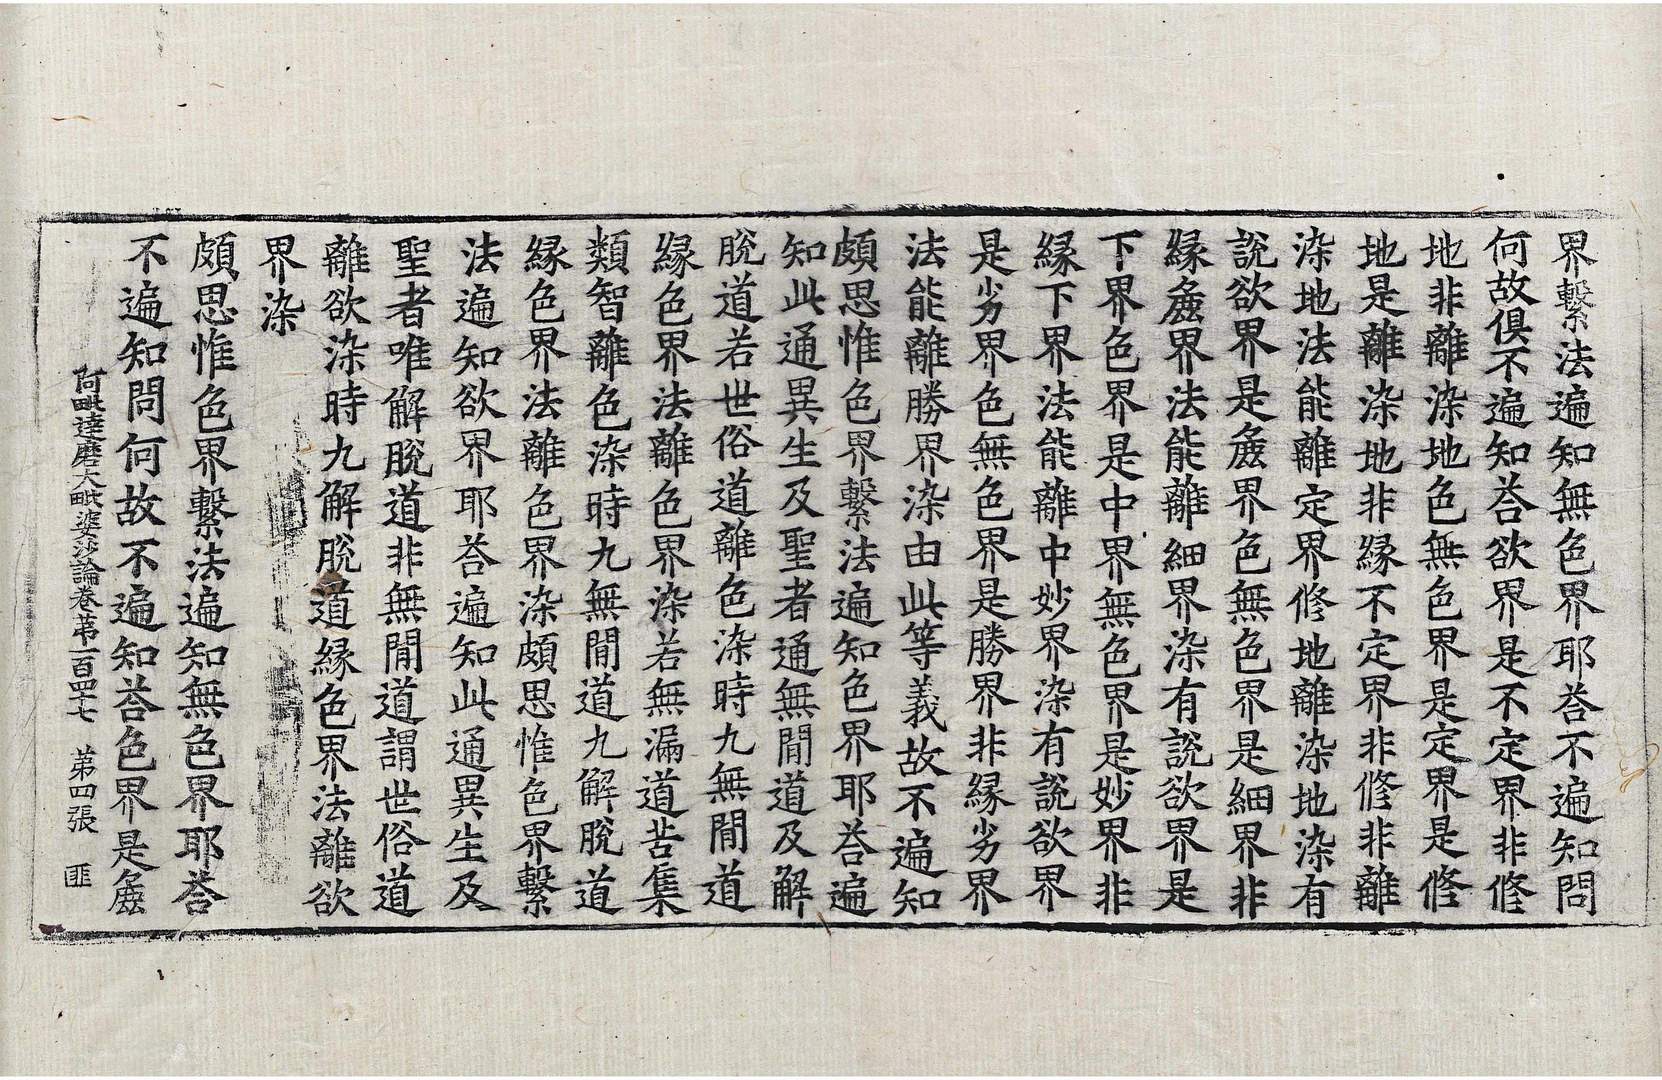 界繫法遍知無色界耶荅不遍知問
何故俱不遍知荅欲界是不定界非修
地非離染地色無色界是定界是修
地是離染地非緣不定界非修非離
染地法能離定界修地離染地染有
說欲界是麁界色無色界是細界非
緣麁界法能離細界染有說欲界是
下界色界是中界無色界是妙界非
緣下界法能離中妙界染有說欲界
是劣界色無色界是勝界非緣劣界
法能離勝界染由此等義故不遍知
頗思惟色界繫法遍知色界耶荅遍
知此通異生及聖者通無閒道及解
脫道若世俗道離色染時九無閒道
緣色界法離色界染若無漏道苦集
類智離色染時九無閒道九解脫道
緣色界法離色界染頗思惟色界繫
法遍知欲界耶荅遍知此通異生及
聖者唯解脫道非無閒道謂世俗道
離欲染時九解脫道緣色界法離欲
界染
頗思惟色界繫法遍知無色界耶荅
不遍知問何故不遍知荅色界是麁
阿毗達磨大毗婆沙論卷第一百四十七 第四張 匪